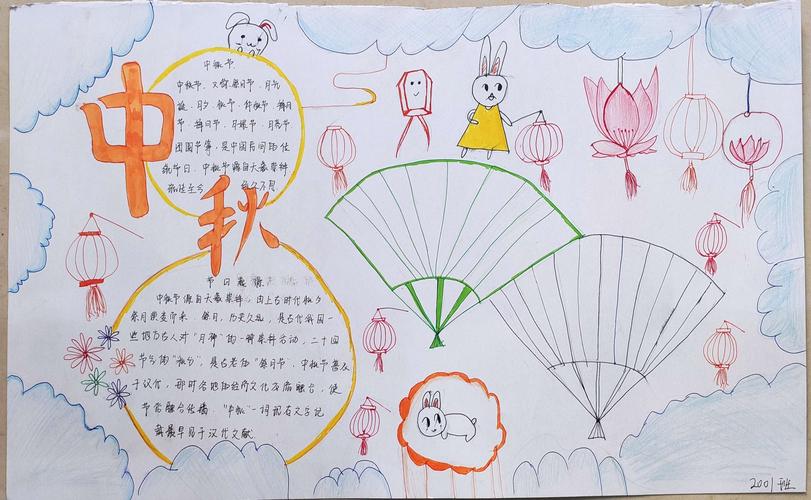 中秋
中秋节
中秋节,又称祭月节、月光
诞、月夕、秋节、仲秋节、拜月
节、月娘节、月亮节、
团圆节等,是中国民间的传
统节日。中秋节源自天象崇拜
节日起源
中秋节源自天象崇拜,由上古时代秋夕
祭月演变而来。祭月,历史久远,是古代我国一
些地方古人对“月神”的一种崇拜活动,二十四
节气的“秋分”,是古老的“祭月节”。中秋节
于汉代,
节俗融合传播。“中秋”一词现存文字记
载最早见于汉代文献
2001班